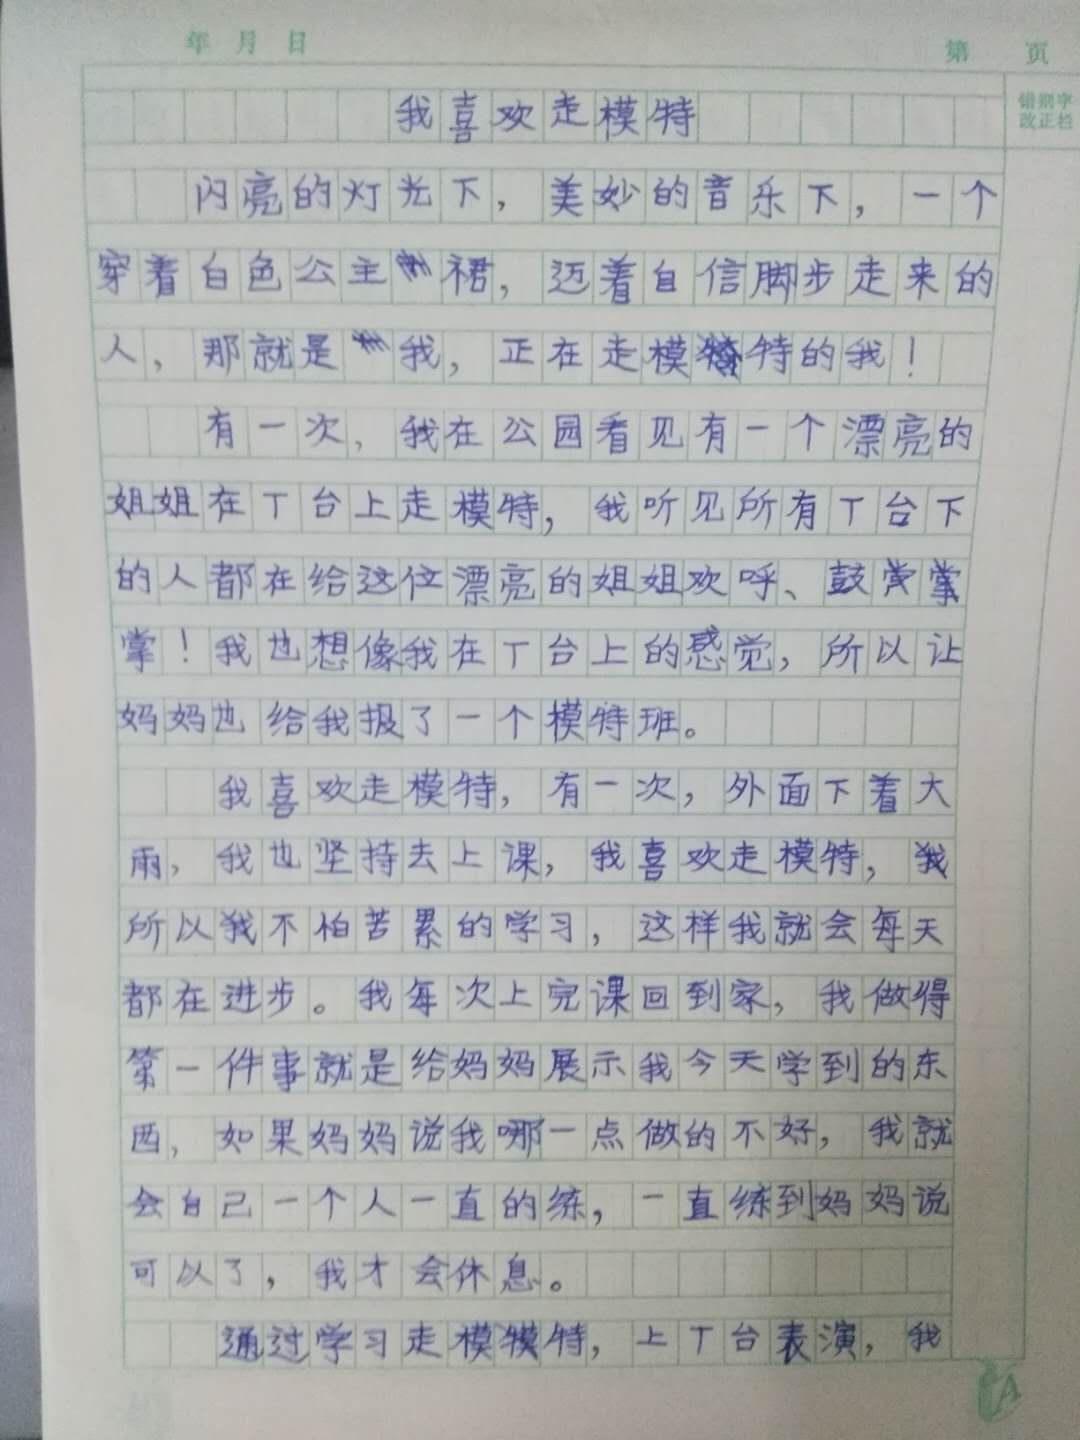 年 月 日
第 页
错别字
改正栏
我喜欢走模特
闪亮的灯光下，美妙的音乐下，一个
穿着白色公主裙，迈着自信脚步走来的
人，那就是我，正在走模特的我！
有一次，我在公园看见有一个漂亮的
姐姐在丅台上走模特，我听见所有丅台下
的人都在给这位漂亮的姐姐欢呼、鼓掌
掌！我也想像我在丅台上的感觉，所以让
妈妈也给我报了一个模特班。
我喜欢走模特，有一次，外面下着大
雨，我也坚持去上课，我喜欢走模特，我
所以我不怕苦累的学习，这样我就会每天
都在进步。我每次上完课回到家，我做得
第一件事就是给妈妈展示我今天学到的东
西，如果妈妈说我哪一点做的不好，我就
会自己一个人一直的练，一直练到妈妈说
可以了，我才会休息。
通过学习走模模特，上丅台表演，我